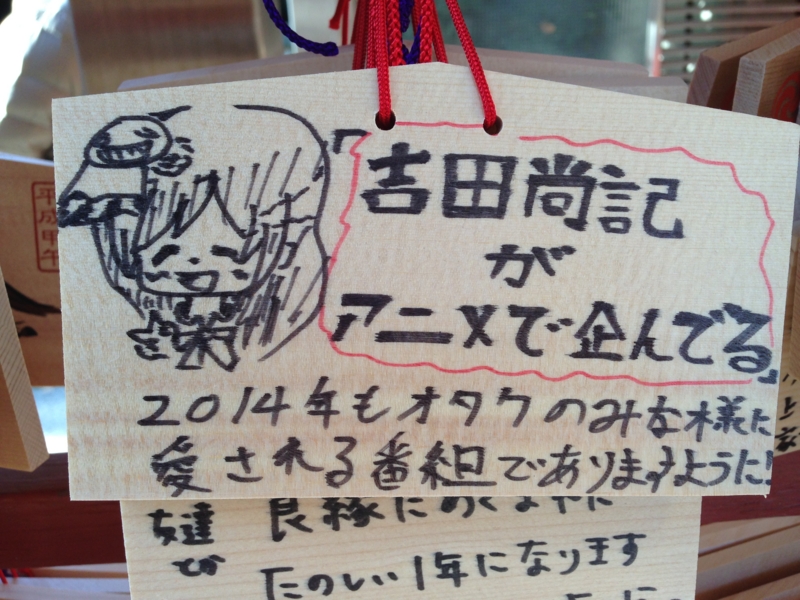 「吉田尚記
が
アニメで企んでる」
2014年もオタクのみな様に
愛される番組でありますように!
良縁にめぐまれ
たのしい1年になります
平成甲午